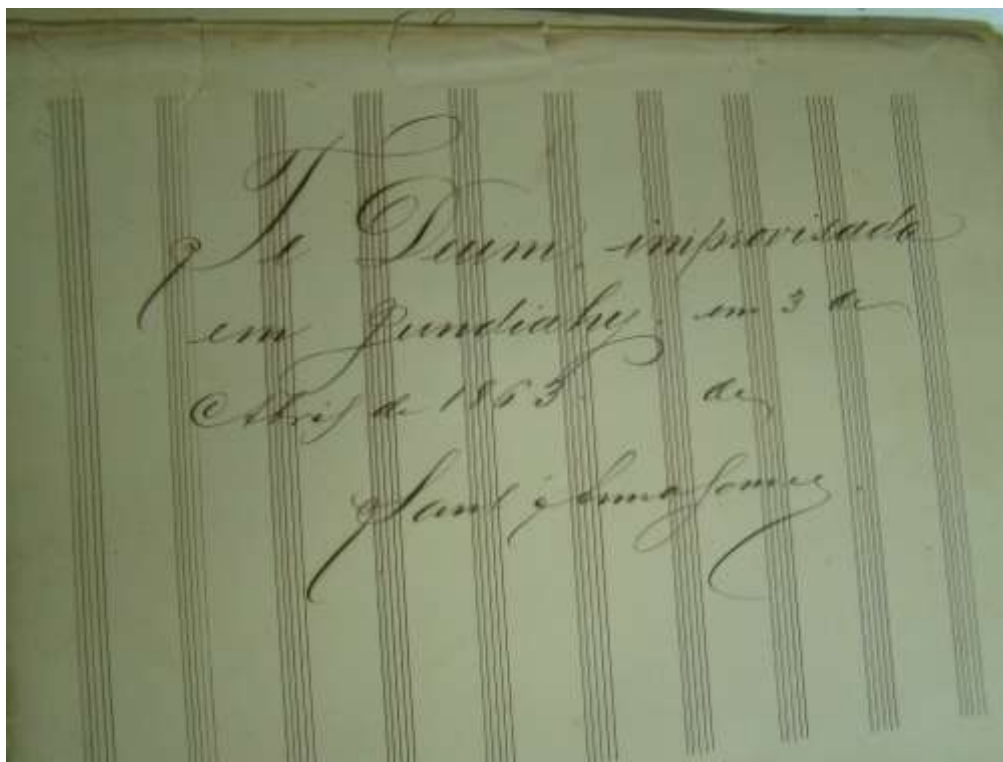 Te Deum, improvisado
em Jundiahy. em 3 de
Abril de 1863. de
Sant'Anna Gomes.